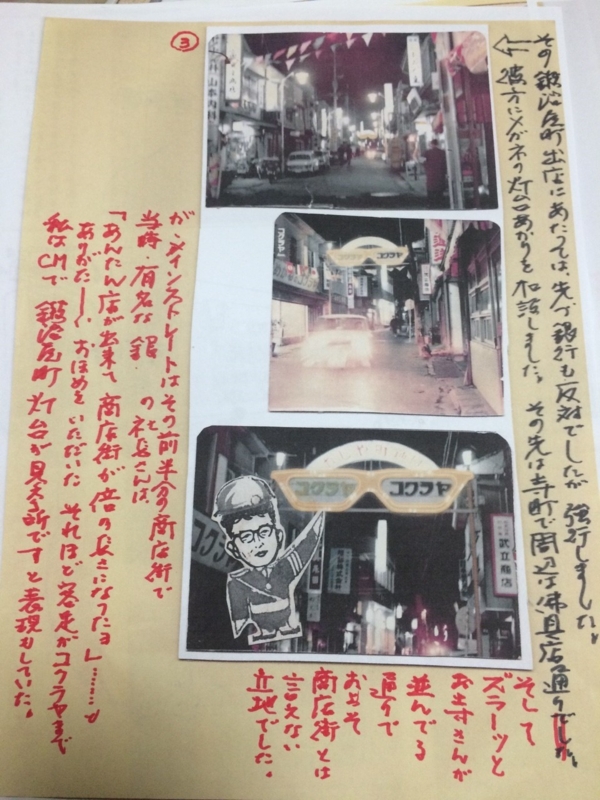 その鍛治屋町出店にあたっては、先づ銀行も反対でしたが 強行しました。
彼方にメガネの灯台あかりと 相談しました。 その先は寺町で周辺は佛具店通りでした。
③
山本内科
コクラヤ
コクラヤ コクラヤ
かじや町
コクラヤ コクラヤ
コクラヤ
武立商店
そして
ズラーッと
お寺さんが
並んでる
通りで
およそ
商店街とは
言えない
立地でした。
が、メインストレートはその前半分の商店街で
当時・有名な 銀 の社長さんは、
「あんたん店が出来て 商店街が倍の長さになったョ」……と
ありがたーくおほめをいただいた それほど客足がコクラヤまで
私はCMで 鍛治屋町 灯台が見える所ですと表現もしていた。